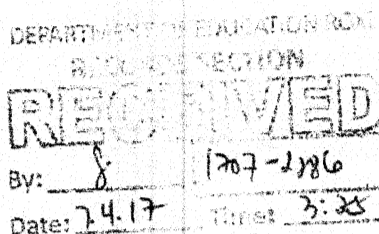 DEPARTMENT OF EDUCATION
RECORDS SECTION
RECEIVED
By: 1707-
Date: 7.4.17 Time: 3:25